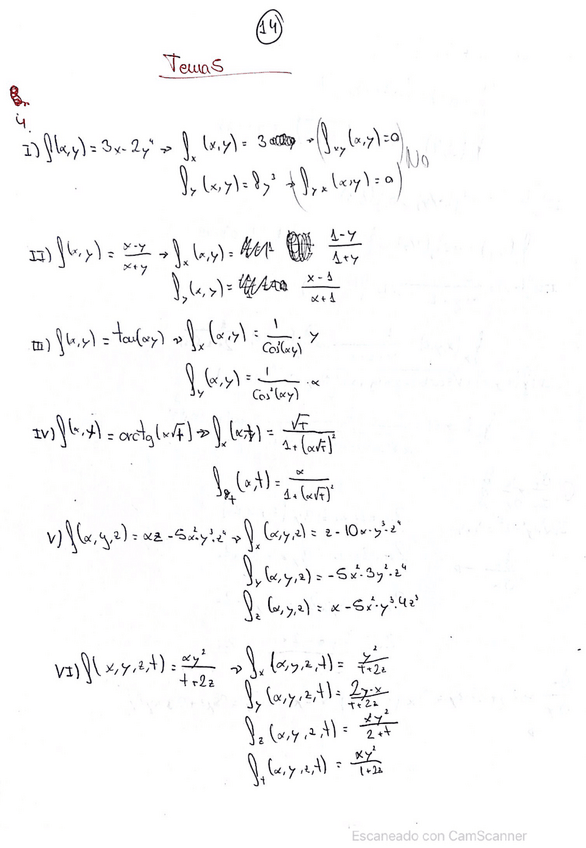 14
Tema 5
4.
I) f(x,y) = 3x - 2y⁴ → f_x (x,y) = 3 → (f_xy (x,y) = 0) No
f_y (x,y) = 8y³ → (f_yx (x,y) = 0)
II) f(x,y) = (x-y)/(x+y) → f_x (x,y) = (1-y)/(1+y)
f_y (x,y) = (x-1)/(x+1)
III) f(x,y) = tan(xy) → f_x (x,y) = 1/cos²(xy) · y
f_y (x,y) = 1/cos²(xy) · x
IV) f(x,t) = arctg(x√t) → f_x (x,t) = √t/(1+(x√t)²)
f_t (x,t) = x/(1+(x√t)²)
V) f(x,y,z) = xz - 5x²·y³·z⁴ → f_x (x,y,z) = z - 10x·y³·z⁴
f_y (x,y,z) = -5x²·3y²·z⁴
f_z (x,y,z) = x - 5x²·y³·4z³
VI) f(x,y,z,t) = xy²/(t+2z) → f_x (x,y,z,t) = y²/(t+2z)
f_y (x,y,z,t) = 2y·x/(t+2z)
f_z (x,y,z,t) = xy²/(2+t)
f_t (x,y,z,t) = xy²/(1+2z)
Escaneado con CamScanner